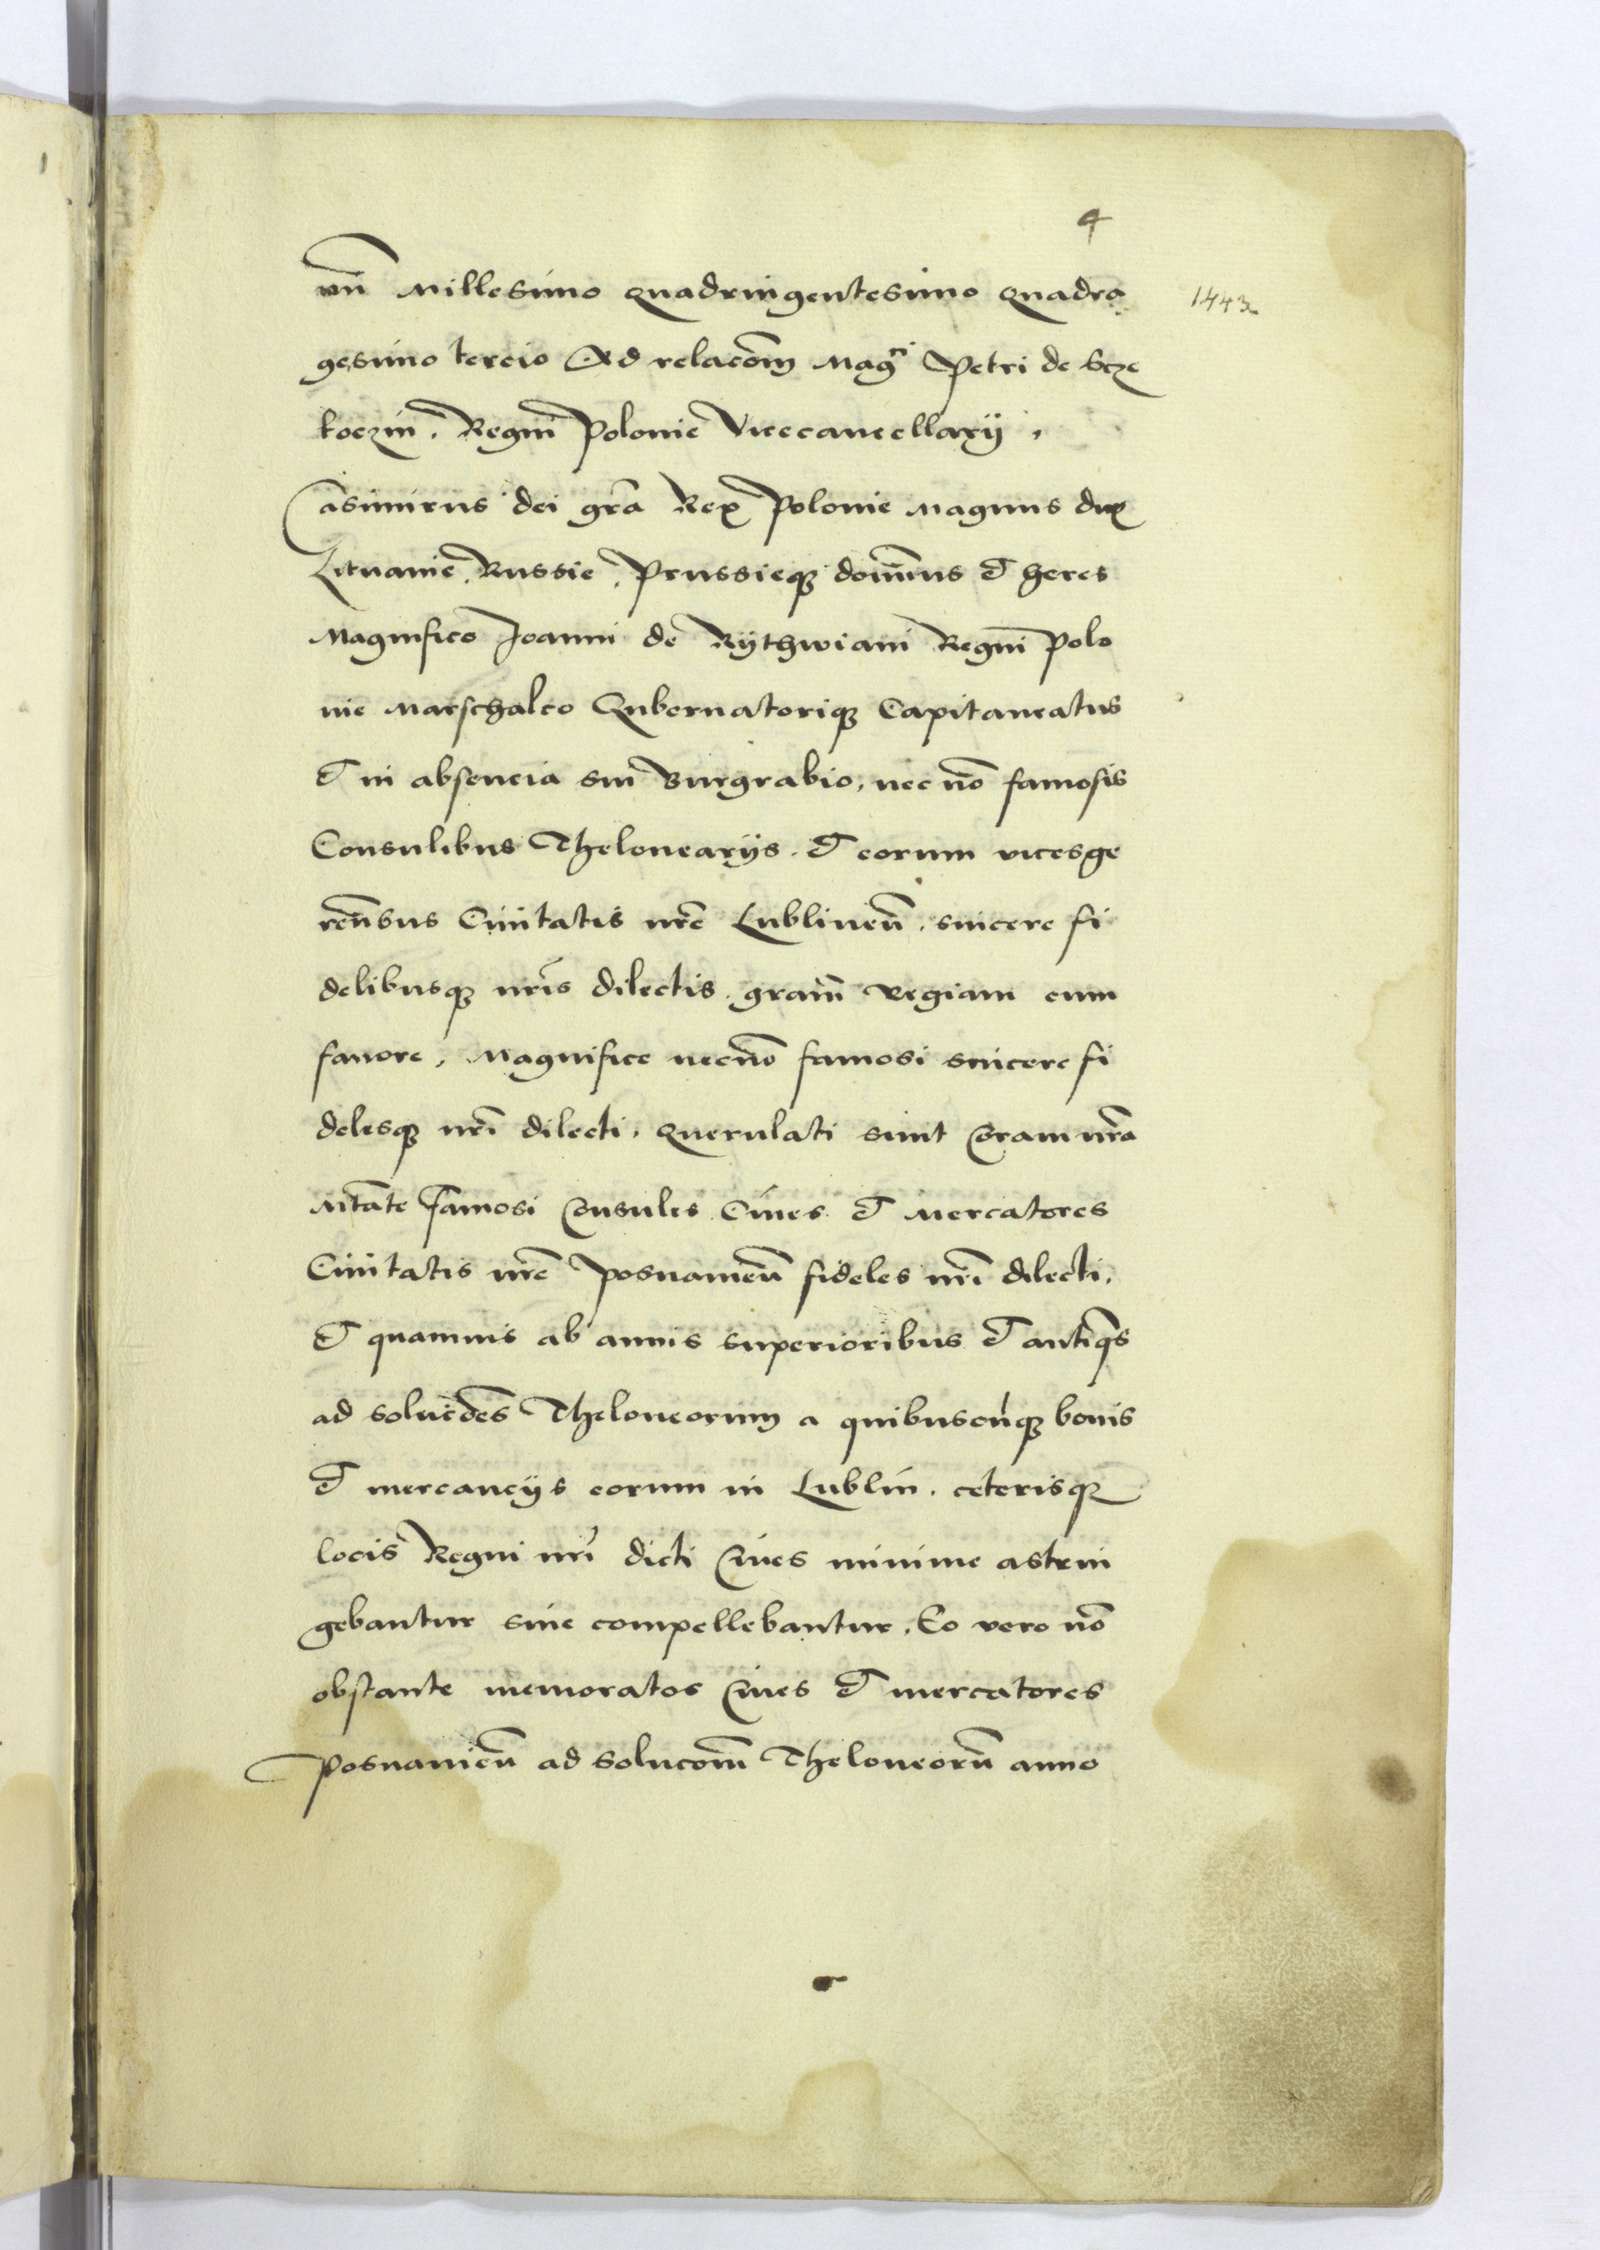 4
vñ Millesimo quadringentesimo quadra
1443
gesimo tercio Ad relacōm Magci Petri de Scze
koczin. Regni Polonie Vicecancellarij.
Casimirus dei grā Rex Polonie Magnus dux
Lituanie, Russie, Prussieq; domīnus & heres
Magnifico Joanni de Rÿthwiani Regni Polo
nie Marschalco Gubernatoriq; Capitaneatus
& in absencia sui Burgrabio, nec nō famosis
Consulibus Thelonearijs. & eorum vicesge
rentibus Ciuitatis nrē Lublineñ. sincere fi
delibusq; nrīs dilectis. gratiā Regiam cum
fauore. Magnifice necnō famosi sincere fi
delesq; nrī dilecti. Querulati sunt Coram nrā
Mtāte famosi Consules Ciues & Mercatores
Ciuitatis nrē Posnanieñ fideles nrī dilecti.
& quamuis ab annis superioribus & antiq̄s
ad solucōes Theloneorum a quibuscūq; bonis
& mercancijs eorum in Lublin. ceterisq;
locis Regni nrī dicti Ciues minime astrin
gebantur siue compellebantur. Eo vero nō
obstante memoratos Ciues & mercatores
Posnanieñ ad solucōm Theloneorū anno